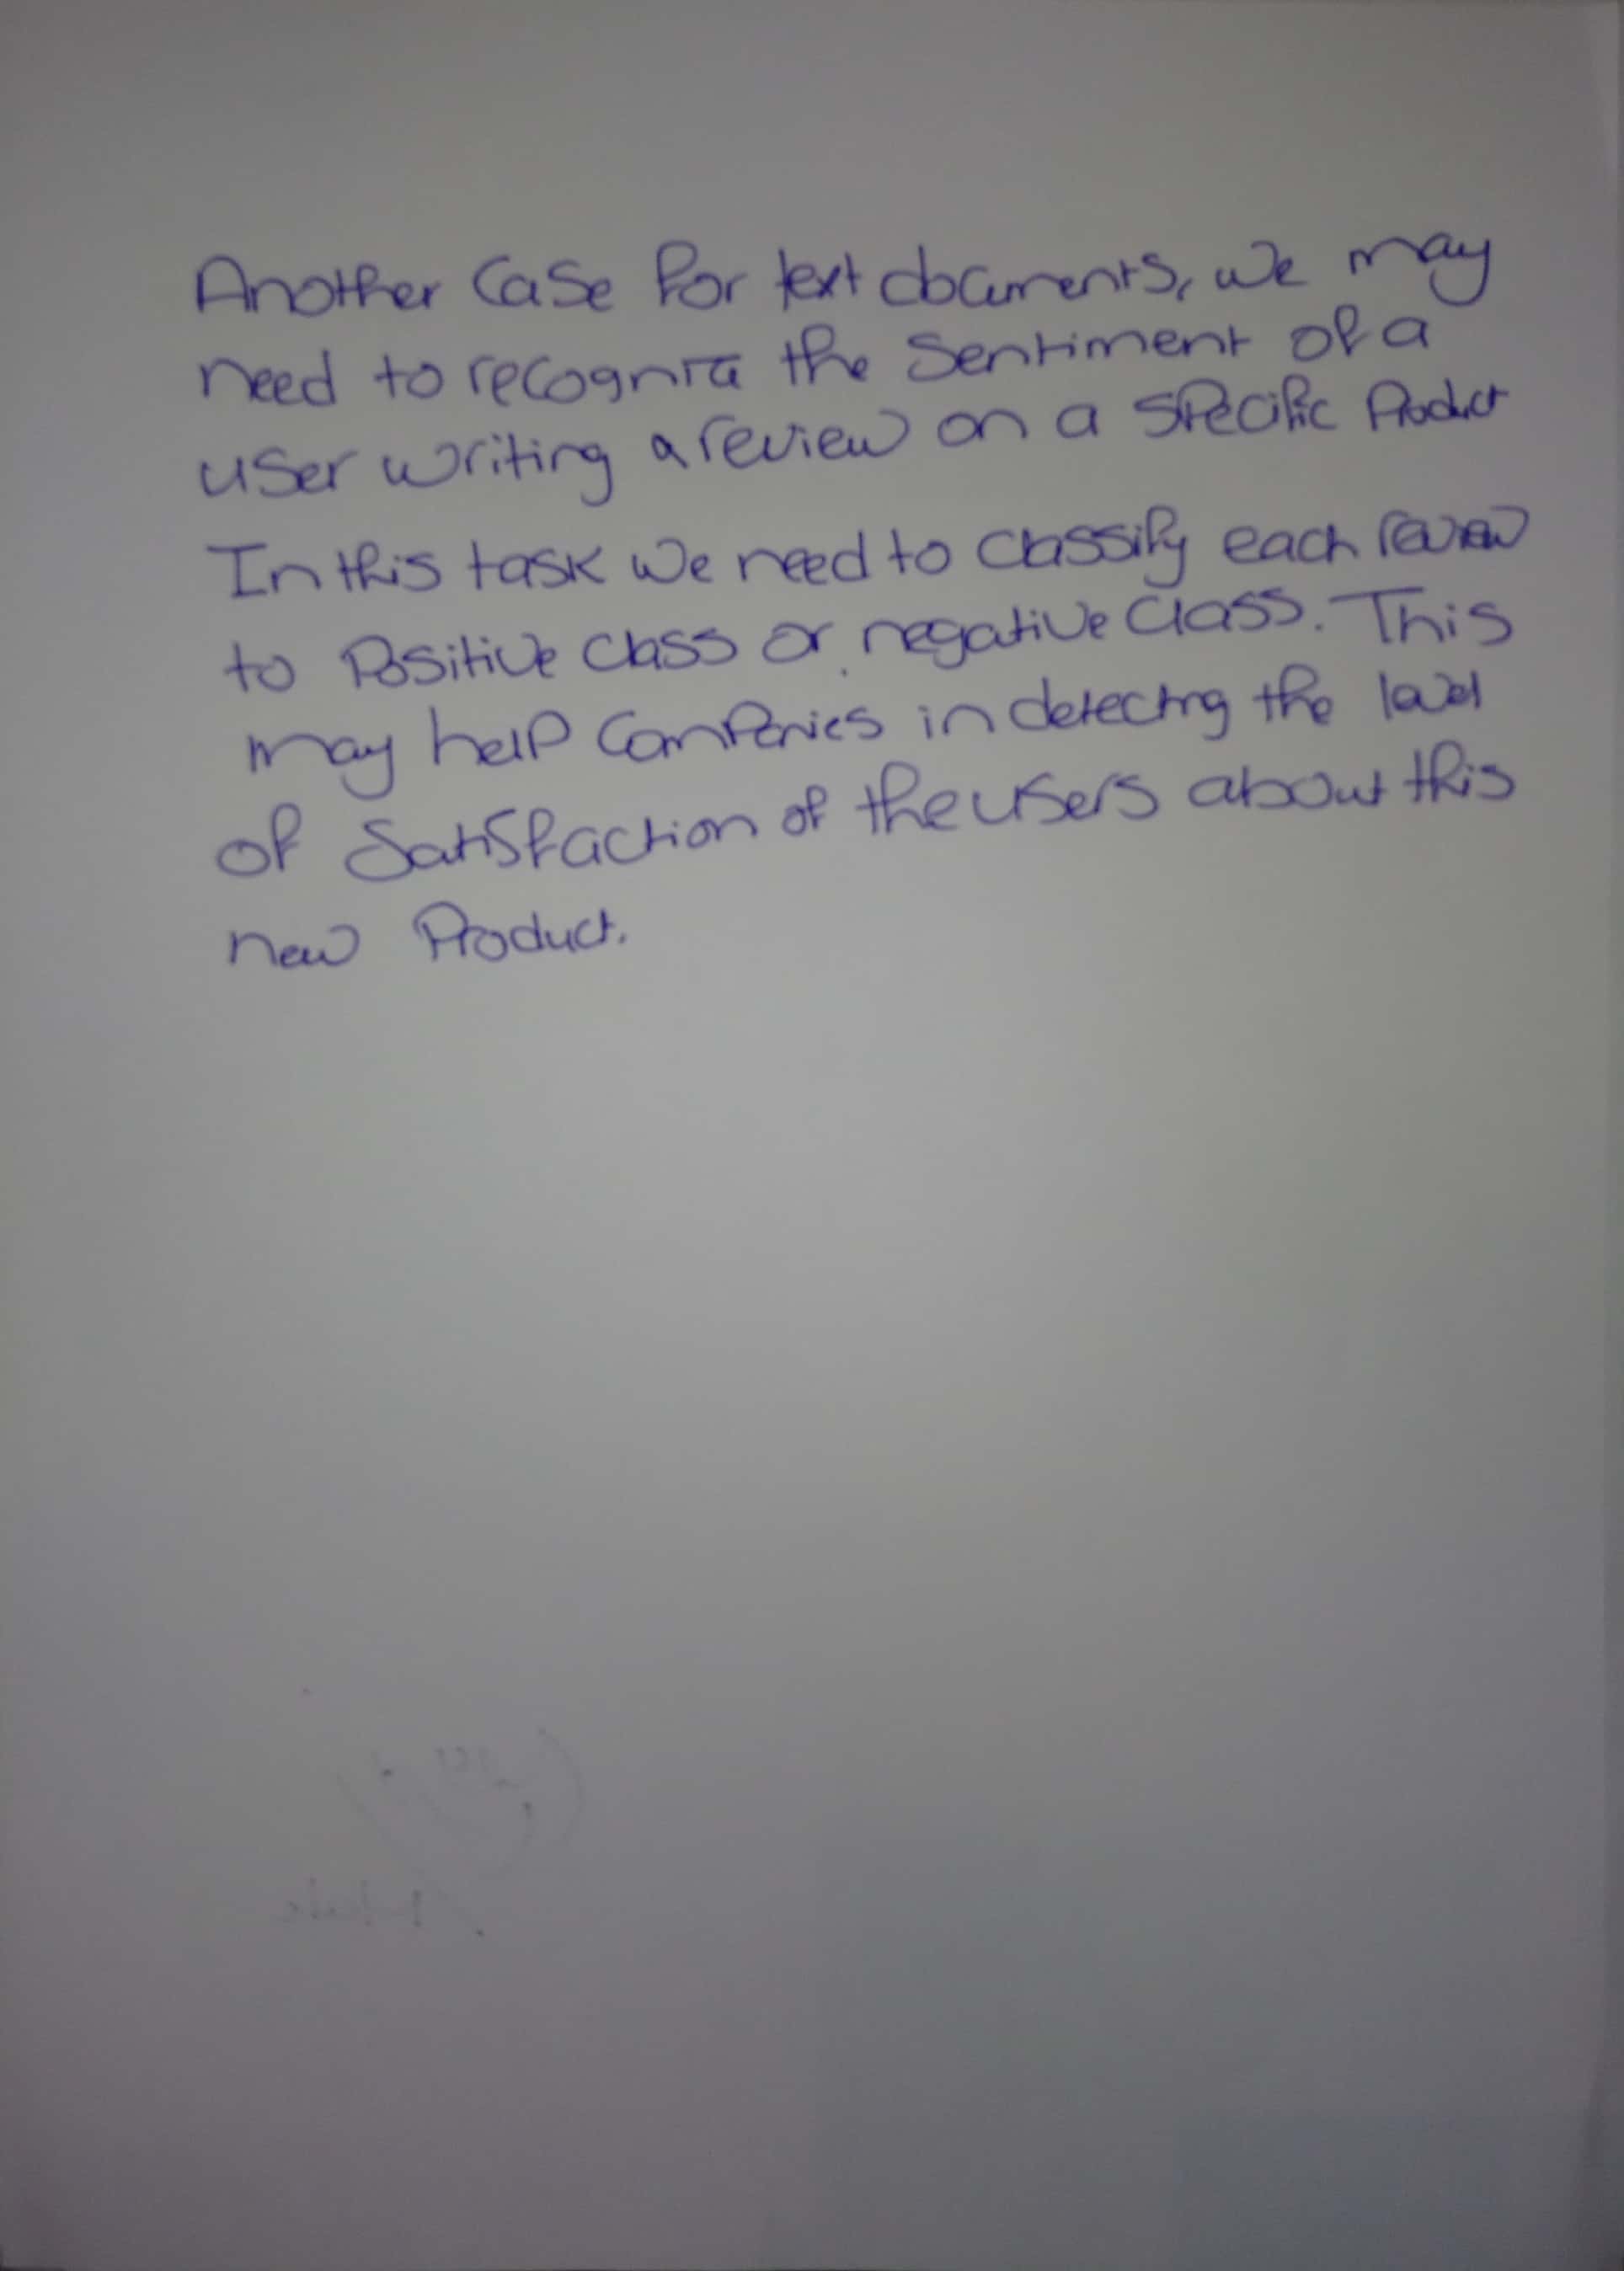 Another Case for text documents, we may
need to recognize the Sentiment of a
user writing a review on a specific Product
In this task we need to classify each review
to Positive class or negative class. This
may help Companies in detecting the level
of Satisfaction of the users about this
new Product.